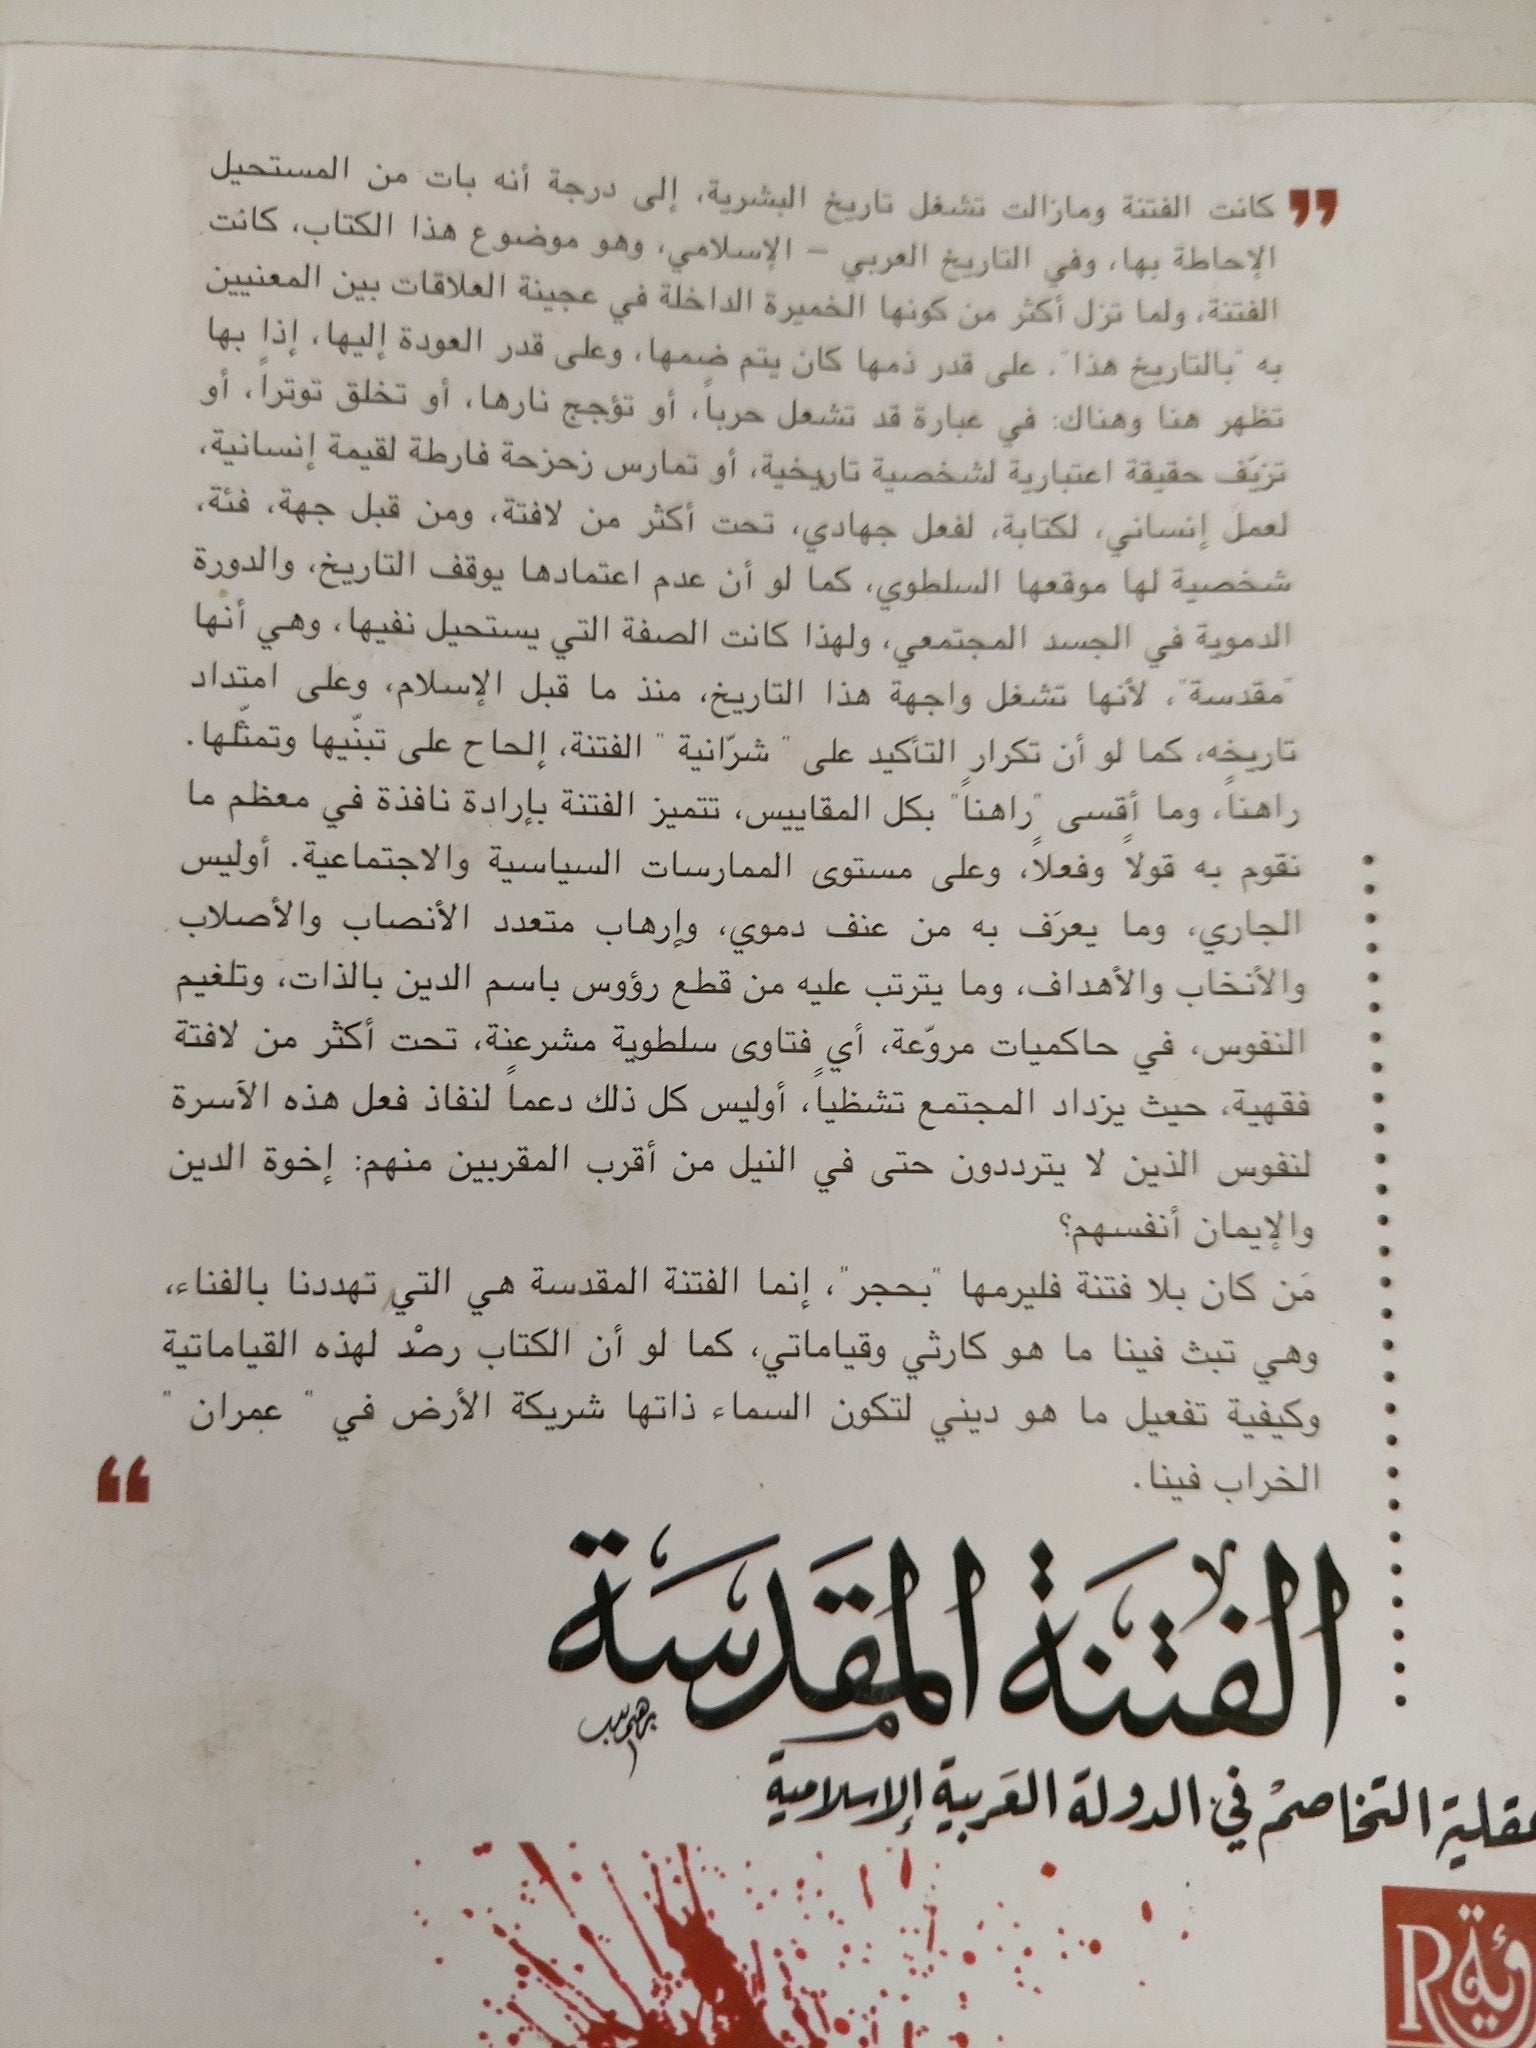 كانت الفتنة ومازالت تشغل تاريخ البشرية، إلى درجة أنه بات من المستحيل
الإحاطة بها، وفي التاريخ العربي – الإسلامي، وهو موضوع هذا الكتاب، كانت
الفتنة، ولما تزل أكثر من كونها الخميرة الداخلة في عجينة العلاقات بين المعنيين
به "بالتاريخ هذا"، على قدر ذمها كان يتم ضمها، وعلى قدر العودة إليها، إذا بها
تظهر هنا وهناك: في عبارة قد تشعل حرباً، أو تؤجج نارها، أو تخلق توتراً، أو
تزيّف حقيقة اعتبارية لشخصية تاريخية، أو تمارس زحزحة فارطة لقيمة إنسانية،
لعمل إنساني، لكتابة، لفعل جهادي، تحت أكثر من لافتة، ومن قبل جهة، فئة،
شخصية لها موقعها السلطوي، كما لو أن عدم اعتمادها يوقف التاريخ، والدورة
الدموية في الجسد المجتمعي، ولهذا كانت الصفة التي يستحيل نفيها، وهي أنها
"مقدسة"، لأنها تشغل واجهة هذا التاريخ، منذ ما قبل الإسلام، وعلى امتداد
تاريخه، كما لو أن تكرار التأكيد على " شرّانية " الفتنة، إلحاح على تبنّيها وتمثّلها.
راهناً، وما أقسى "راهناً" بكل المقاييس، تتميز الفتنة بإرادة نافذة في معظم ما
نقوم به قولاً وفعلاً، وعلى مستوى الممارسات السياسية والاجتماعية. أوليس
الجاري، وما يعرَف به من عنف دموي، وإرهاب متعدد الأنصاب والأصلاب
والأنخاب والأهداف، وما يترتب عليه من قطع رؤوس باسم الدين بالذات، وتلغيم
النفوس، في حاكميات مروّعة، أي فتاوى سلطوية مشرعنة، تحت أكثر من لافتة
فقهية، حيث يزداد المجتمع تشظياً، أوليس كل ذلك دعماً لنفاذ فعل هذه الآسرة
لنفوس الذين لا يترددون حتى في النيل من أقرب المقربين منهم: إخوة الدين
والإيمان أنفسهم؟
مَن كان بلا فتنة فليرمها "بحجر"، إنما الفتنة المقدسة هي التي تهددنا بالفناء،
وهي تبث فينا ما هو كارثي وقياماتي، كما لو أن الكتاب رصْد لهذه القياماتية
وكيفية تفعيل ما هو ديني لتكون السماء ذاتها شريكة الأرض في " عمران "
الخراب فينا.
الفتنة المقدسة
عقلية التخاصم في الدولة العربية الإسلامية